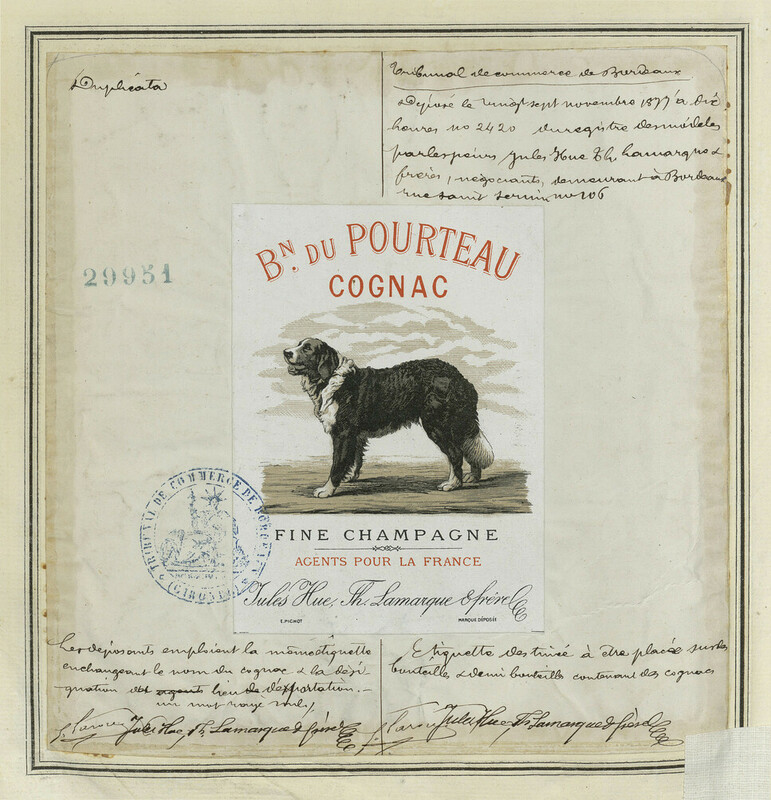 Duplicata
Tribunal de commerce de Bordeaux
Déposé le vingt sept novembre 1877 à dix
heures no 2420 du registre des modèles
par les sieurs Jules Hue Th. Lamarque &
frères, négociants, demeurant à Bordeaux
rue saint Sernin no 106
29951
BN. DU POURTEAU
COGNAC
FINE CHAMPAGNE
AGENTS POUR LA FRANCE
Jules Hue, Th. Lamarque & frère
E. PICHOT
MARQUE DÉPOSÉE
TRIBUNAL DE COMMERCE DE BORDEAUX
(GIRONDE)
Les déposants emploient la même étiquette
en changeant le nom du cognac & la dési-
gnation des agents lieu de d'exportation. —
un mot rayé nul,
Jules Hue, Th. Lamarque & frères
Etiquette destinée à être placée sur des
bouteilles & demi bouteilles contenant des cognacs
Jules Hue, Th Lamarque & frères